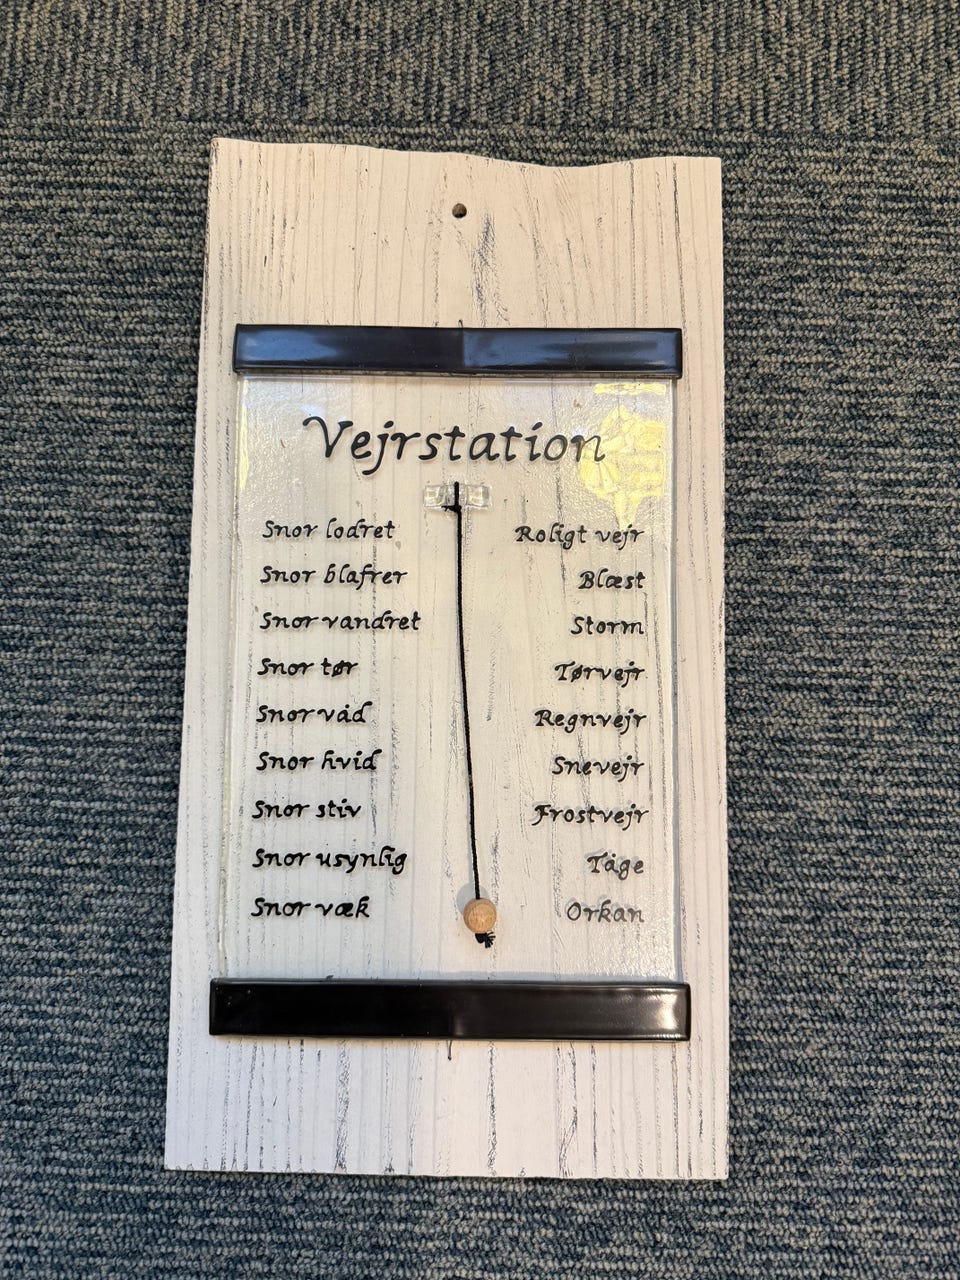 Vejrstation
Snor lodret Roligt vejr
Snor blafrer Blæst
Snor vandret Storm
Snor tør Tørvejr
Snor våd Regnvejr
Snor hvid Snevejr
Snor stiv Frostvejr
Snor usynlig Tåge
Snor væk Orkan